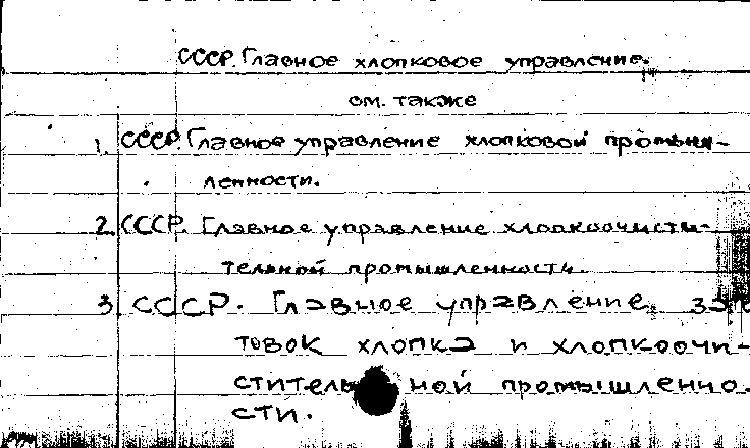 СССР. Главное хлопковое управление.
см. также
1. СССР. Главное управление хлопковой промыш-
ленности.
2. СССР. Главное управление хлопкоочисти-
тельной промышленности.
3. СССР. Главное управление заго
товок хлопка и хлопкоочи-
стительной промышленно-
сти.